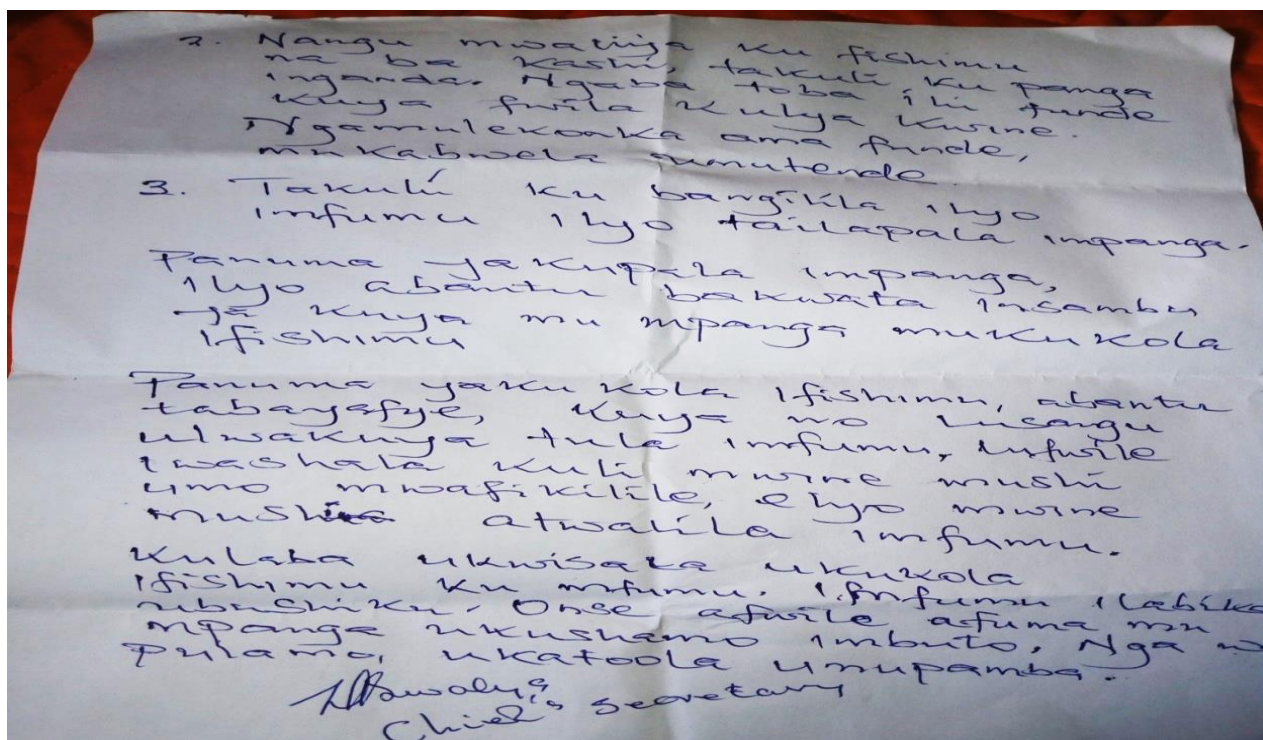 2. Nangu mwatiija ku fishimu
na ba kashi, takuli ku panga
inganda. Ngaba toba ili funde
Kuya fwila kulya kwine.
Ngamulekonka ama funde,
mukabwela umutende.
3. Takuli ku bangilila ilyo
imfumu ilyo tailapala impanga.
Panuma yakupala impanga,
ilyo abantu bakwata insambu
ya kuya mu mpanga mukukola
ifishimu
Panuma yaku kola ifishimu, abantu
tabayafye, kuya no lusangu
ulwakuya tula imfumu, lufwile
lwashala kuli mwine mushi
umo mwafikilile, elyo mwine
mushi atwalila imfumu.
Kulaba ukwisala ukukola
ifishimu ku mfumu. Imfumu ilabika
ubushiku. Onse afwile afuma mu
mpanga ukushamo imbuto. Nga
pulamo, ukatoola umupamba.
Chief's secretary